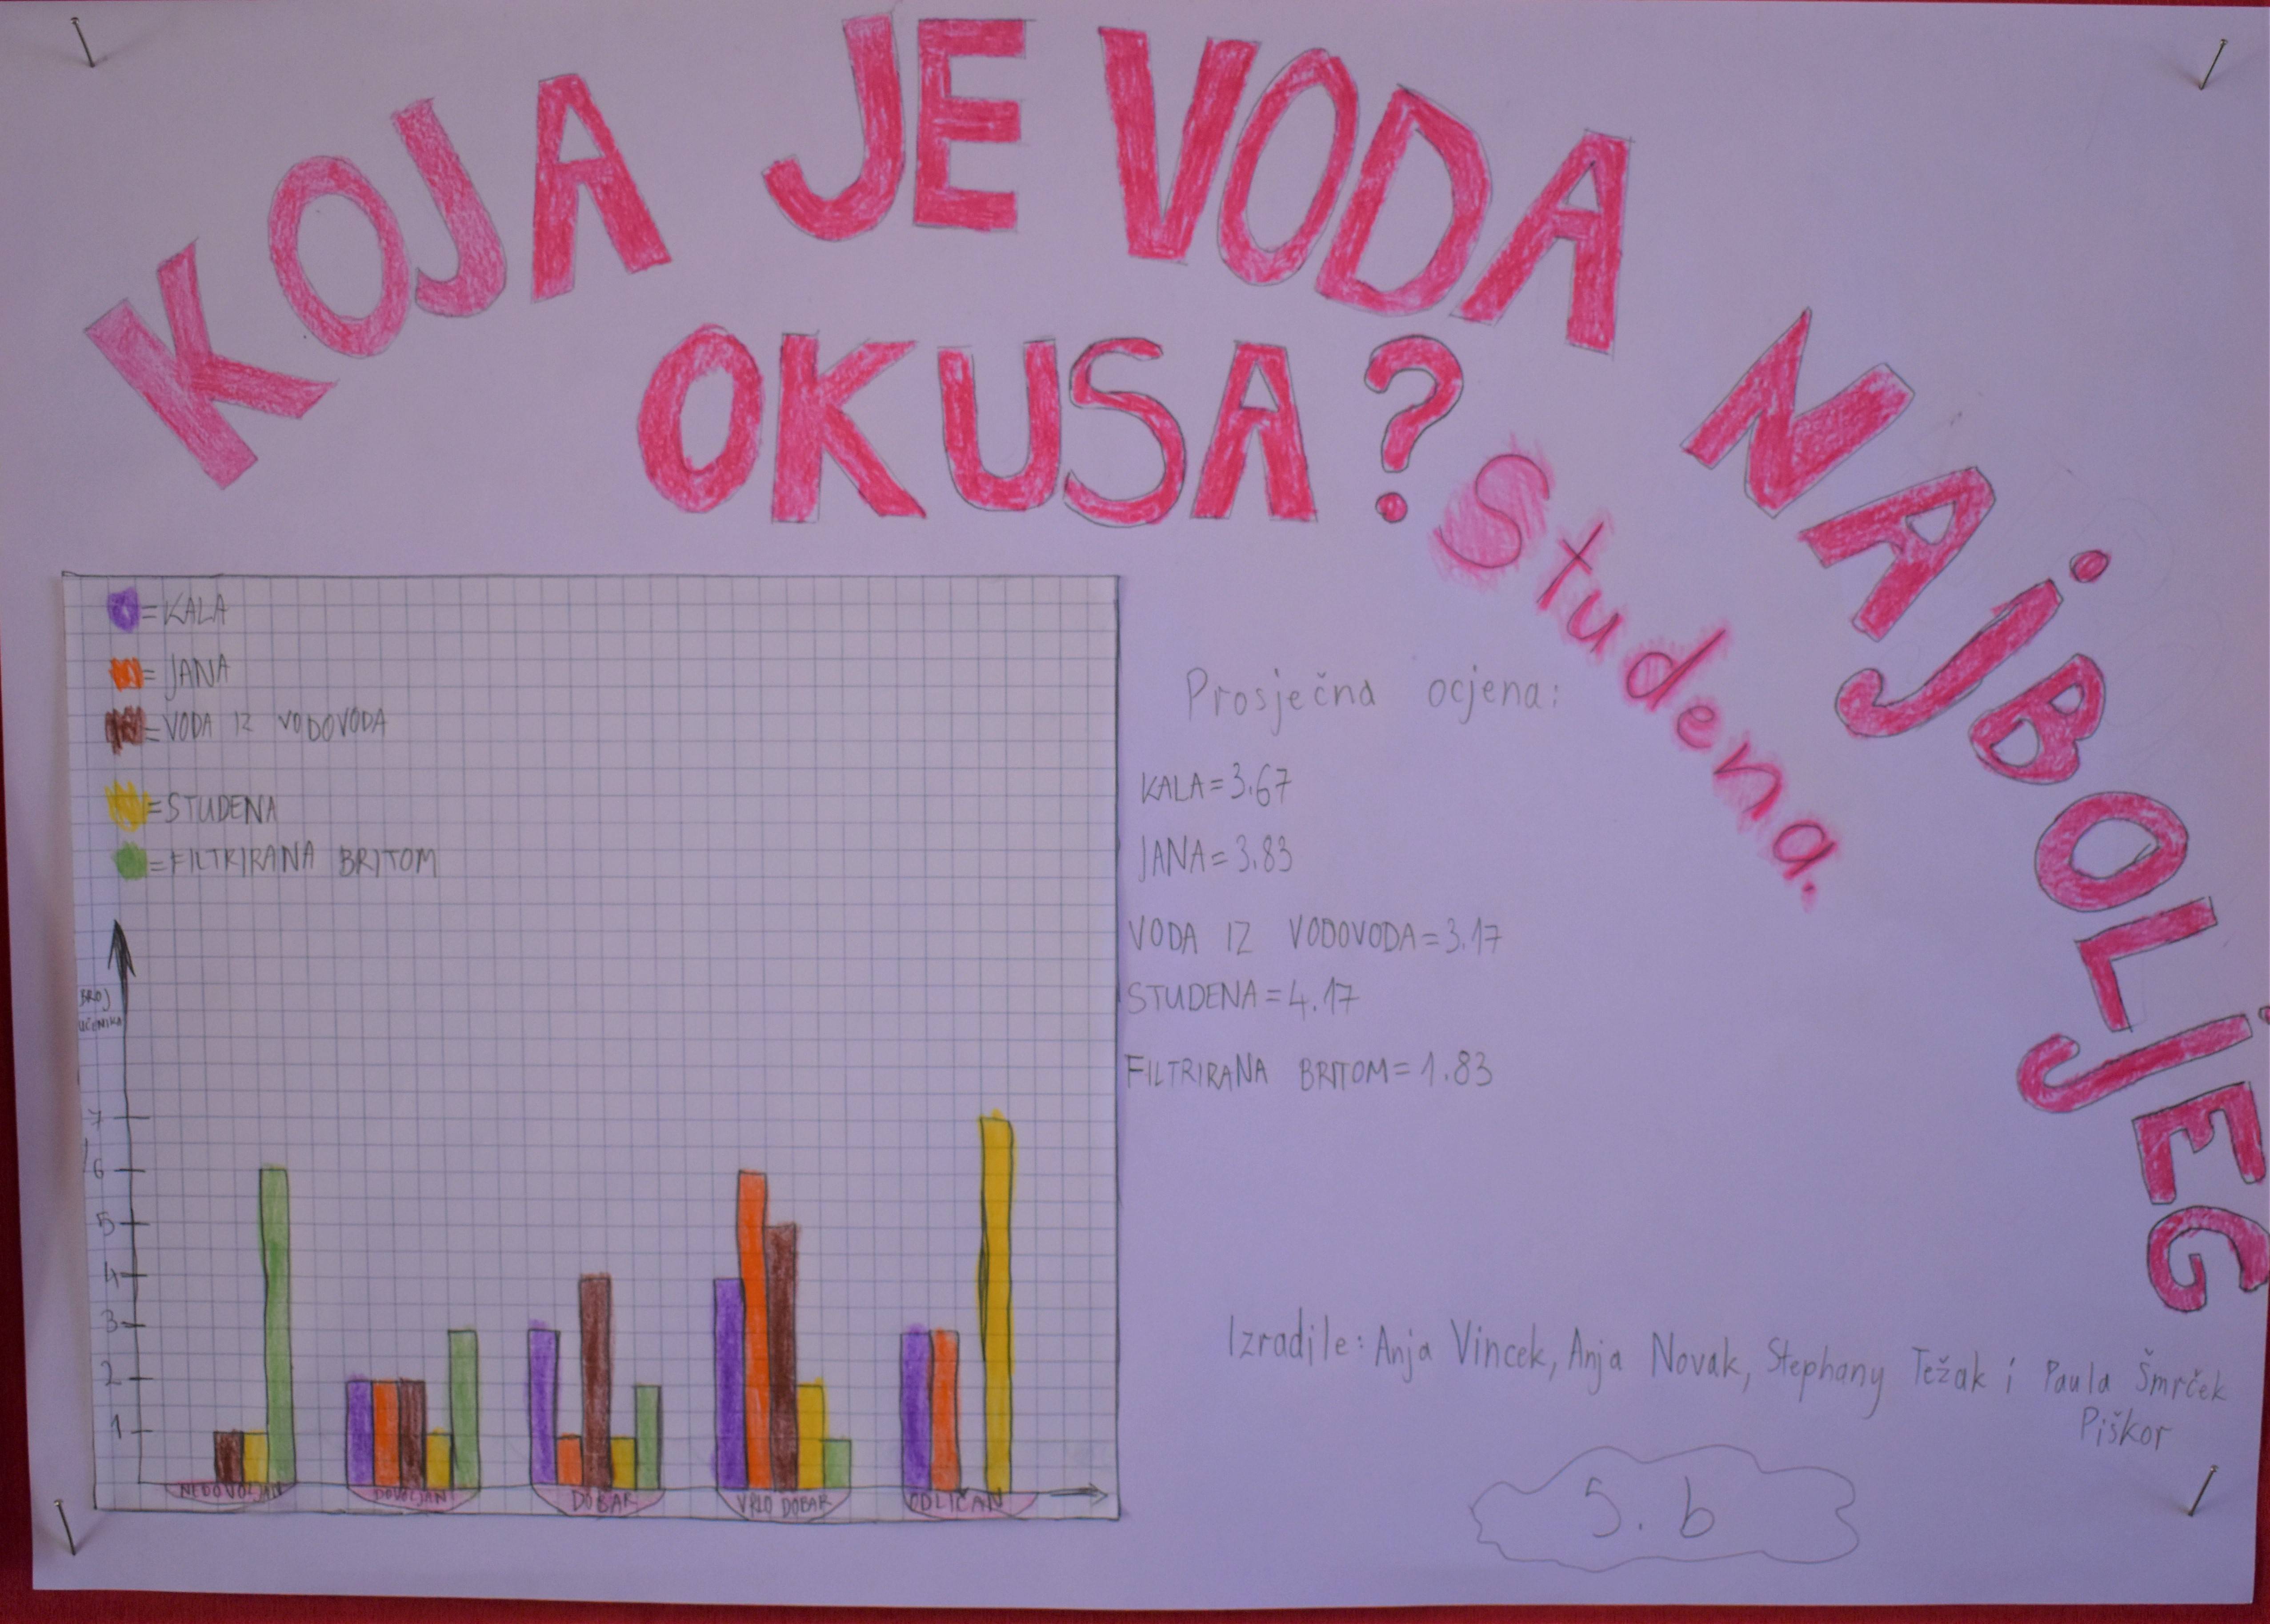 KOJA JE VODA NAjBOLjEG
OKUSA?
Studena.
= KALA
= JANA
= VODA IZ VODOVODA
= STUDENA
= FILTRIRANA BRITOM
BROJ
UČENIKA
7
6
5
4
3
2
1
NEDOVOLJAN DOVOLJAN DOBAR VRLO DOBAR ODLIČAN
Prosječna ocjena:
KALA = 3.67
JANA = 3.83
VODA IZ VODOVODA = 3.17
STUDENA = 4.17
FILTRIRANA BRITOM = 1.83
Izradile: Anja Vincek, Anja Novak, Stephany Težak i Paula Šmrček
Piškor
5. b